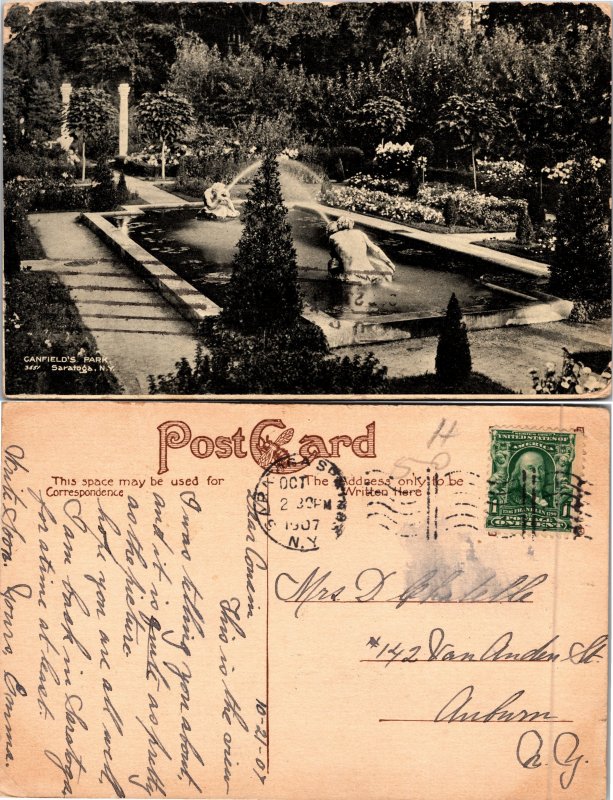 CANFIELD'S PARK
3651 Saratoga, N.Y.
Post Card
This space may be used for
Correspondence
The Address only to be
Written Here
SARATOGA SPRINGS
OCT
2 30PM
1907
N.Y.
UNITED STATES OF
AMERICA
FRANKLIN
POSTAGE
ONE CENT
Mrs D
#142 Van Anden St.
Auburn
N.Y.
10-21-07
Dear Cousin
This is the view
I was telling you about,
and it is quite as pretty
as the picture.
hope you are all well
I am back in Saratoga
for a time at least.
Write Soon. Yours Emma.